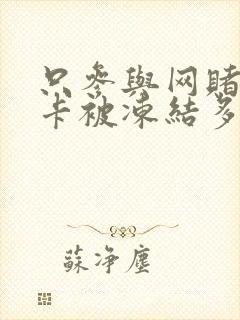 只參與网賭
卡被凍結多
蘇净塵